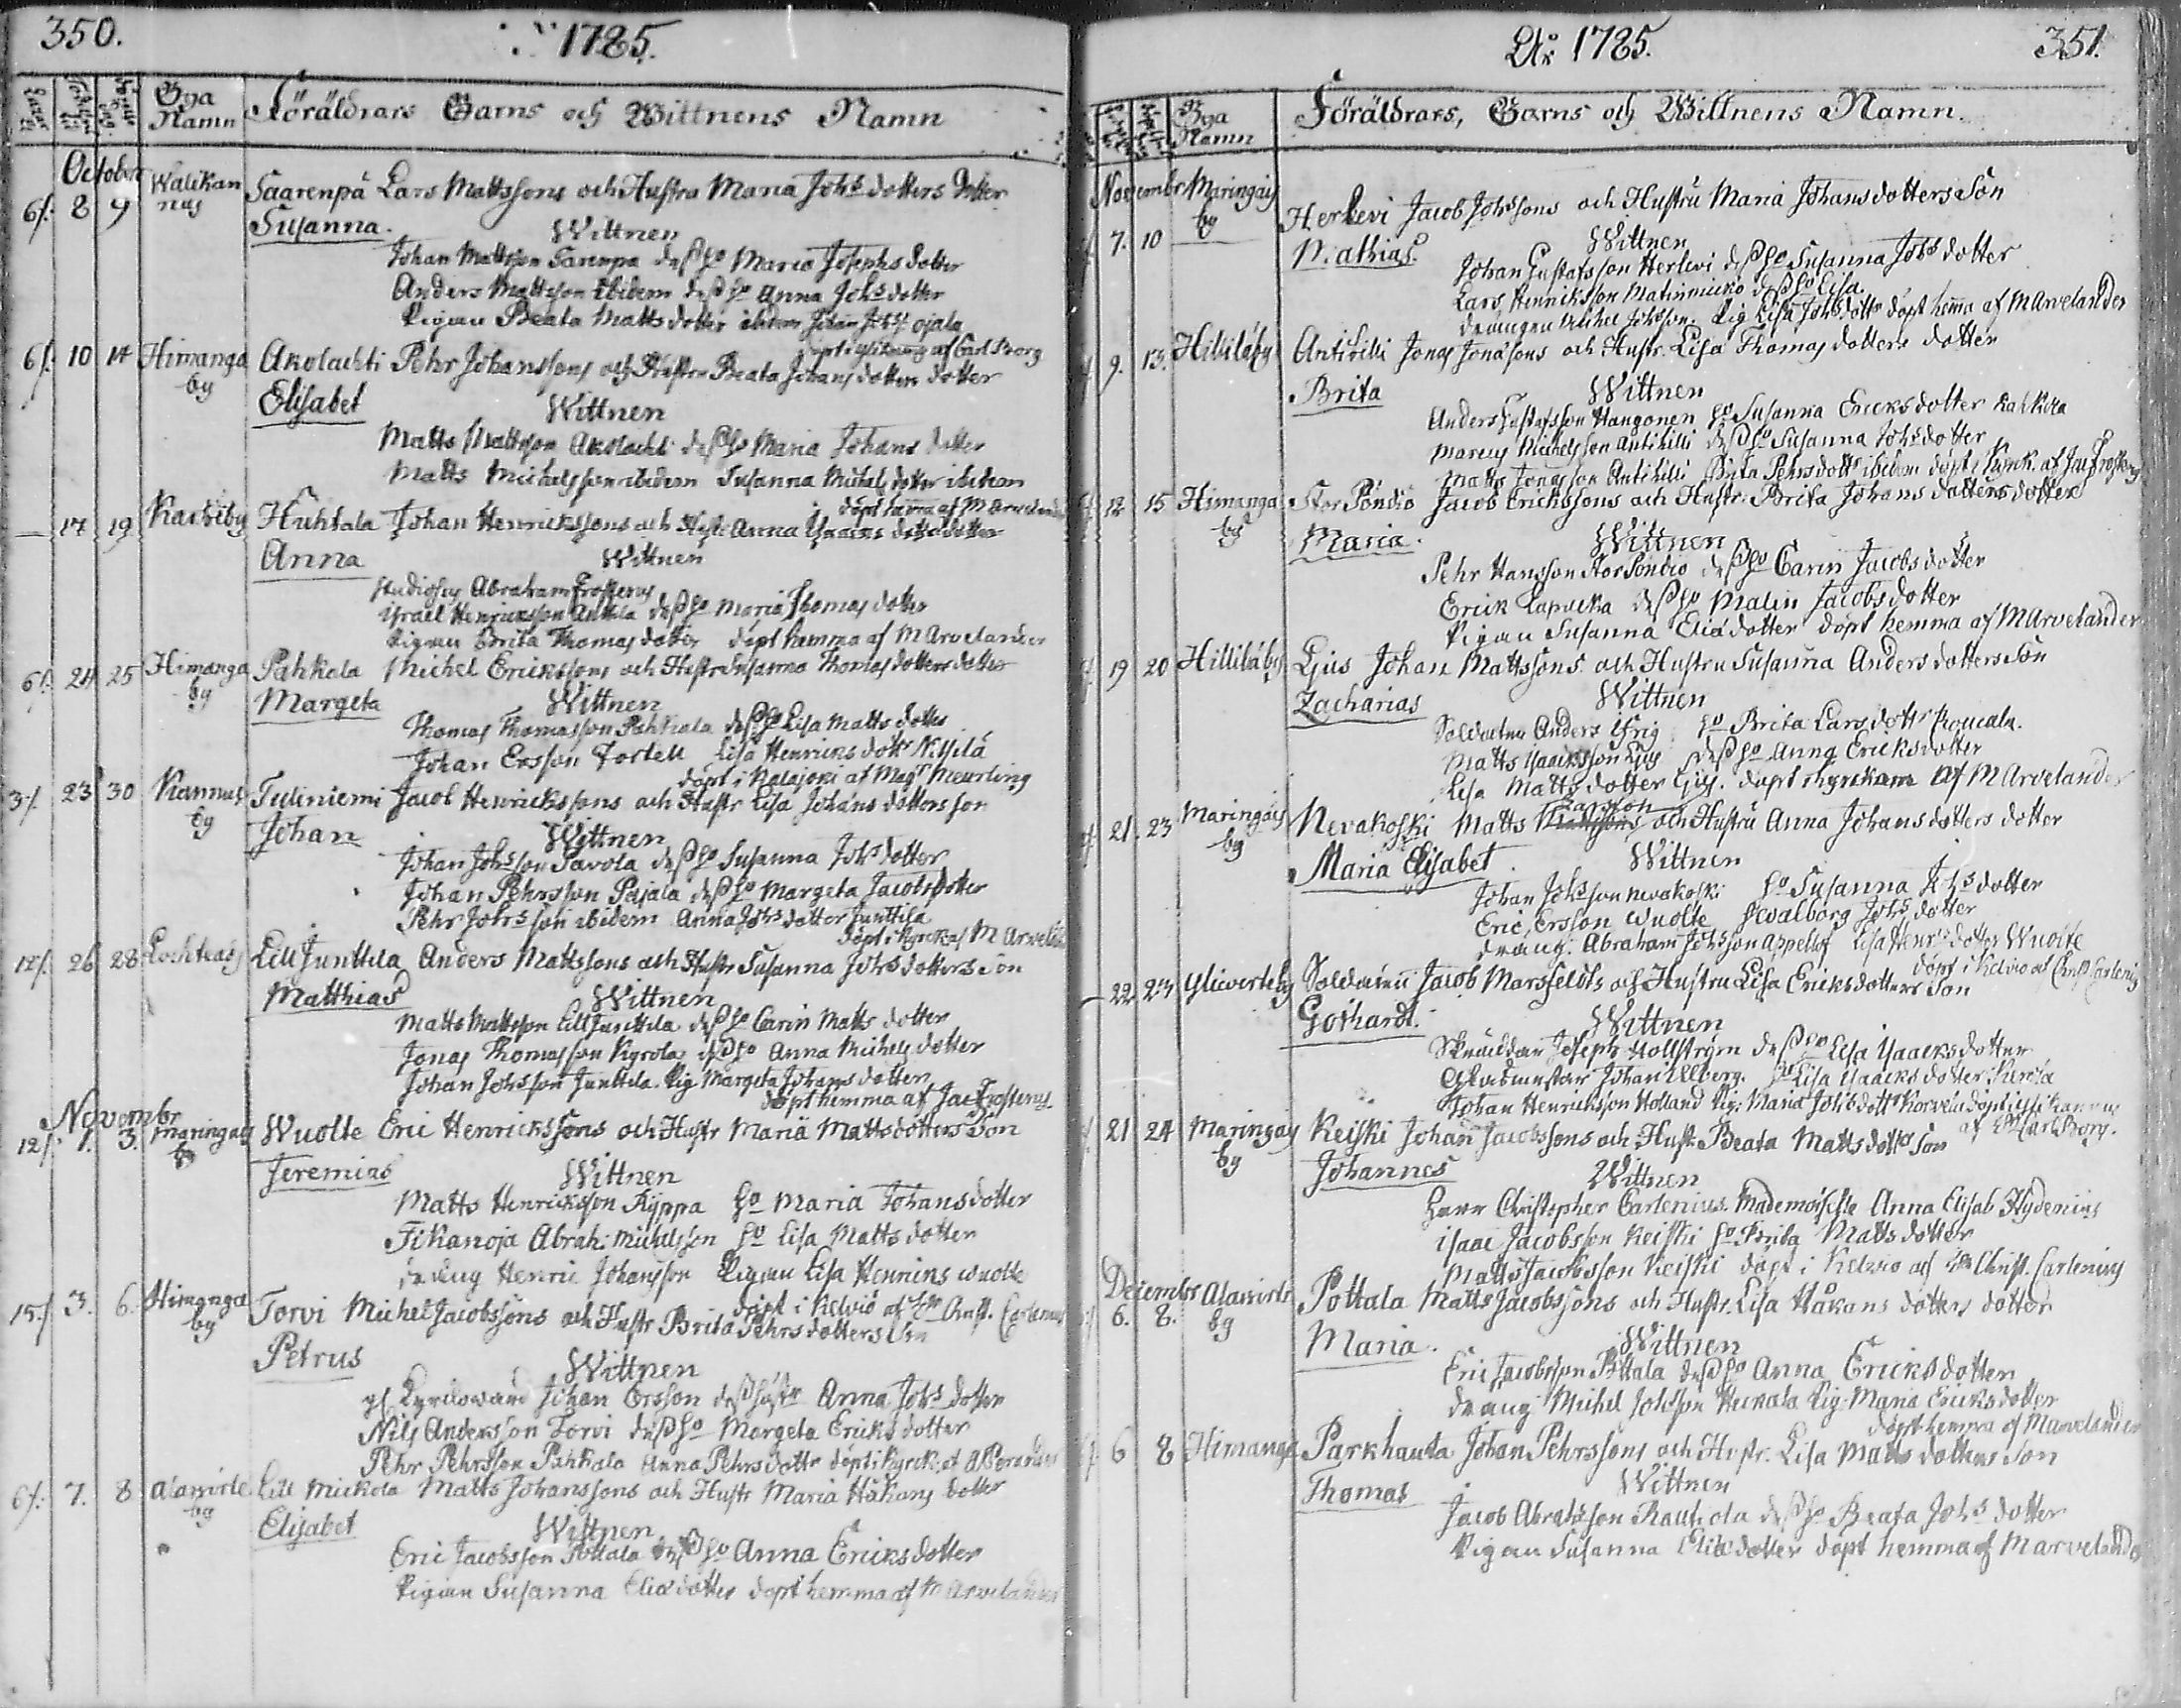 350.
1785.
Bya Namn
Föräldrars Barns och Wittnens Namn
October
6/. 8 9 Walikan nus Saarenpä Lars Mattssons och Hustru Maria Johs dotters dotter
Susanna.
Wittnen
Johan Mattsson Sarenpä dess ho Maria Josephs dotter
Anders Mattsson ibidem dess ho Anna Johs dotter
Pigan Beata Matts dotter ibidem Johan Johss ojala
döpt i af Carl Borg
6/. 10 14 Himanga by Akolachti Pehr Johanssons och Hustru Beata Johans dotters dotter
Elisabet
Wittnen
Matts Mattsson Akolachti dess ho Maria Johans dotter
Matts Michelsson ibidem Susanna Michels dotter ibidem
döpt hemma af M Arvelander
17 19 Karhiby Huhtala Johan Henrikssons och Hustr Anna Ysaacs dotts dotter
Anna
Wittnen
studiosus Abraham Frosterus
Ysrael Henricsson Anttila dess ho Maria Thomas dotter
Pigan Brita Thomas dotter döpt hemma af M Arvelander
6/. 24 25 Himanga by Pahkala Michel Erickssons och Hustr Susanna Thomas dotters dotter
Margeta
Wittnen
Thomas Thomasson Pahkala dess ho Lisa Matts dotter
Johan Ersson Tortell Lisa Henricks dottr Nissilä
döpt i Kalajoki af Magr Meurling
3/. 23 30 Kannus by Tuliniemi Jacob Henrickssons och Hustr Lisa Johans dotters son
Johan
Wittnen
Johan Johsson Pavola dess ho Susanna Johs dotter
Johan Pehrsson Pajala dess ho Margeta Jacobs dotter
Pehr Johsson ibidem Anna Johs dotter Junttila
döpt i Kyrck af M Arvelander
12/. 26 28 Lochteåby Lill Junttila Anders Mattssons och Hustr Susanna Johs dotters Son
Matthias
Wittnen
Matts Mattsson Lill Junttila dess ho Carin Matts dotter
Jonas Thomasson Kyrola dess ho Anna Michels dotter
Johan Johsson Junttila. Pig Margeta Johans dotter
döpt hemma af Jac Frosterus
Novembr
12/. 1. 3. Maringais by Wuolte Eric Henrickssons och Hustr Maria Mattsdotters Son
Jeremias
Wittnen
Matts Henricksson Ryppa ho Maria Johansdotter
Tikanoja Abrah: Michelsson ho Lisa Matts dotter
dräng Henric Johansson Pigan Lisa Henrics Wuolte
döpt i Kelviö af Hr Christ. Carlenius
15/. 3. 6. Himanga by Torvi Michel Jacobssons och Hustr Brita Pehrsdotters Son
Petrus
Wittnen
gl Kyrckoward Johan Ersson dess hustr Anna Johs dotter
Nils Andersson Torvi dess ho Margeta Ericks dotter
Pehr Pehrsson Pahkala Anna Pehrsdottr döpt i Kyrck. af
6/. 7. 8 Alawirte by Lill Mickola Matts Johanssons och Hustr Maria Håkans dotter
Elisabet
Wittnen
Eric Jacobsson Pottala dess ho Anna Ericksdotter
Pigan Susanna Elia dotter döpt hemma af M Arvelander
År 1785.
351.
Bya Namn
Föräldrars, Barns och Wittnens Namn.
Novembr Maringais by
7. 10 Herlevi Jacob Johssons och Hustru Maria Johansdotters Son
Mathias.
Wittnen
Johan Gustafsson Herlevi dess ho Susanna Johs dotter
Lars Henricksson Matinmicko dess ho Lisa.
drängen Michel Johsson. Pig Lisa Johs dottr döpt hemma af M Arvelander
9. 13. Hillilåby Antihilli Jonas Jonassons och Hustr. Lisa Thomas dotters dotter
Brita
Wittnen
Anders Gustafsson Hangonen ho Susanna Ericksdotter Kahkola
Marcus Michelsson Antihilli dess ho Susanna Johsdotter
Matts Jonasson Antihilli Brita Pehrsdottr ibidem döpt i Kyrck. af Jac Frosterus
12 15 Himanga by Stor Pöndiö Jacob Erickssons och Hustr: Brita Johans dotters dotter
Maria.
Wittnen
Pehr Hansson Stor Pöndiö dess ho Carin Jacobs dotter
Erick Lapucka dess ho Malin Jacobsdotter
Pigan Susanna Eliædotter döpt hemma af M Arvelander
19 20 Hillilåby Ljus Johan Mattssons och Hustru Susanna Andersdotters Son
Zacharias
Wittnen
Soldaten Anders Ifrig ho Brita Larsdottr
Matts Ysaacksson Ljus dess ho Anna Ericksdotter
Lisa Matts dotter Ljus. döpt i kyrckan af M Arvelander
21. 23 Maringais by Nevakoski Matts Larsson och Hustru Anna Johansdotters dotter
Maria Elisabet
Wittnen
Johan Johsson Nevakoski ho Susanna Johs dotter
Eric Ersson Wuolte ho Walborg Johs dotter
dräng: Abraham Johsson Appellöf Lisa Henrs dotter Wuolte
döpt i Kelvio af Christ. Carlenius
22 24 Yliwirteby Soldaten Jacob Marsfeldts och Hustru Lisa Ericksdotters Son
Gothardt.
Wittnen
Skräddar Joseph Hollström dess ho Lisa Ysaacksdotter
Johan Ullberg. ho Lisa Ysaacks dotter
Johan Henricksson Holland Pig: Maria Johs dottr Korvela döpt i Ylikannus
af Hr Carl Borg.
21 24 Maringais by Keiski Johan Jacobssons och Hustr. Beata Mattsdottr Son
Johannes
Wittnen
Herr Christopher Carlenius. Mademoiselle Anna Elisab Hydenius
Isaac Jacobsson Keiski ho Brita Matts dotter
Matts Jacobsson Keiski döpt i Kelvio af Hr Christ. Carlenius
Decembr Alawirte by
6. 8. Pottala Matts Jacobssons och Hustr. Lisa Håkans dotters dotter
Maria.
Wittnen
Eric Jacobsson Pottala dess ho Anna Ericksdotter
dräng Michel Johsson Heckala Pig: Maria Ericksdotter
döpt hemma af M Arvelander
6 8 Himanga Parkhauta Johan Pehrssons och Hustr. Lisa Matts dotters Son
Thomas
Wittnen
Jacob Abrahsson Rautiola dess ho Beata Johs dotter
Pigan Susanna Eliædotter döpt hemma af M Arvelander